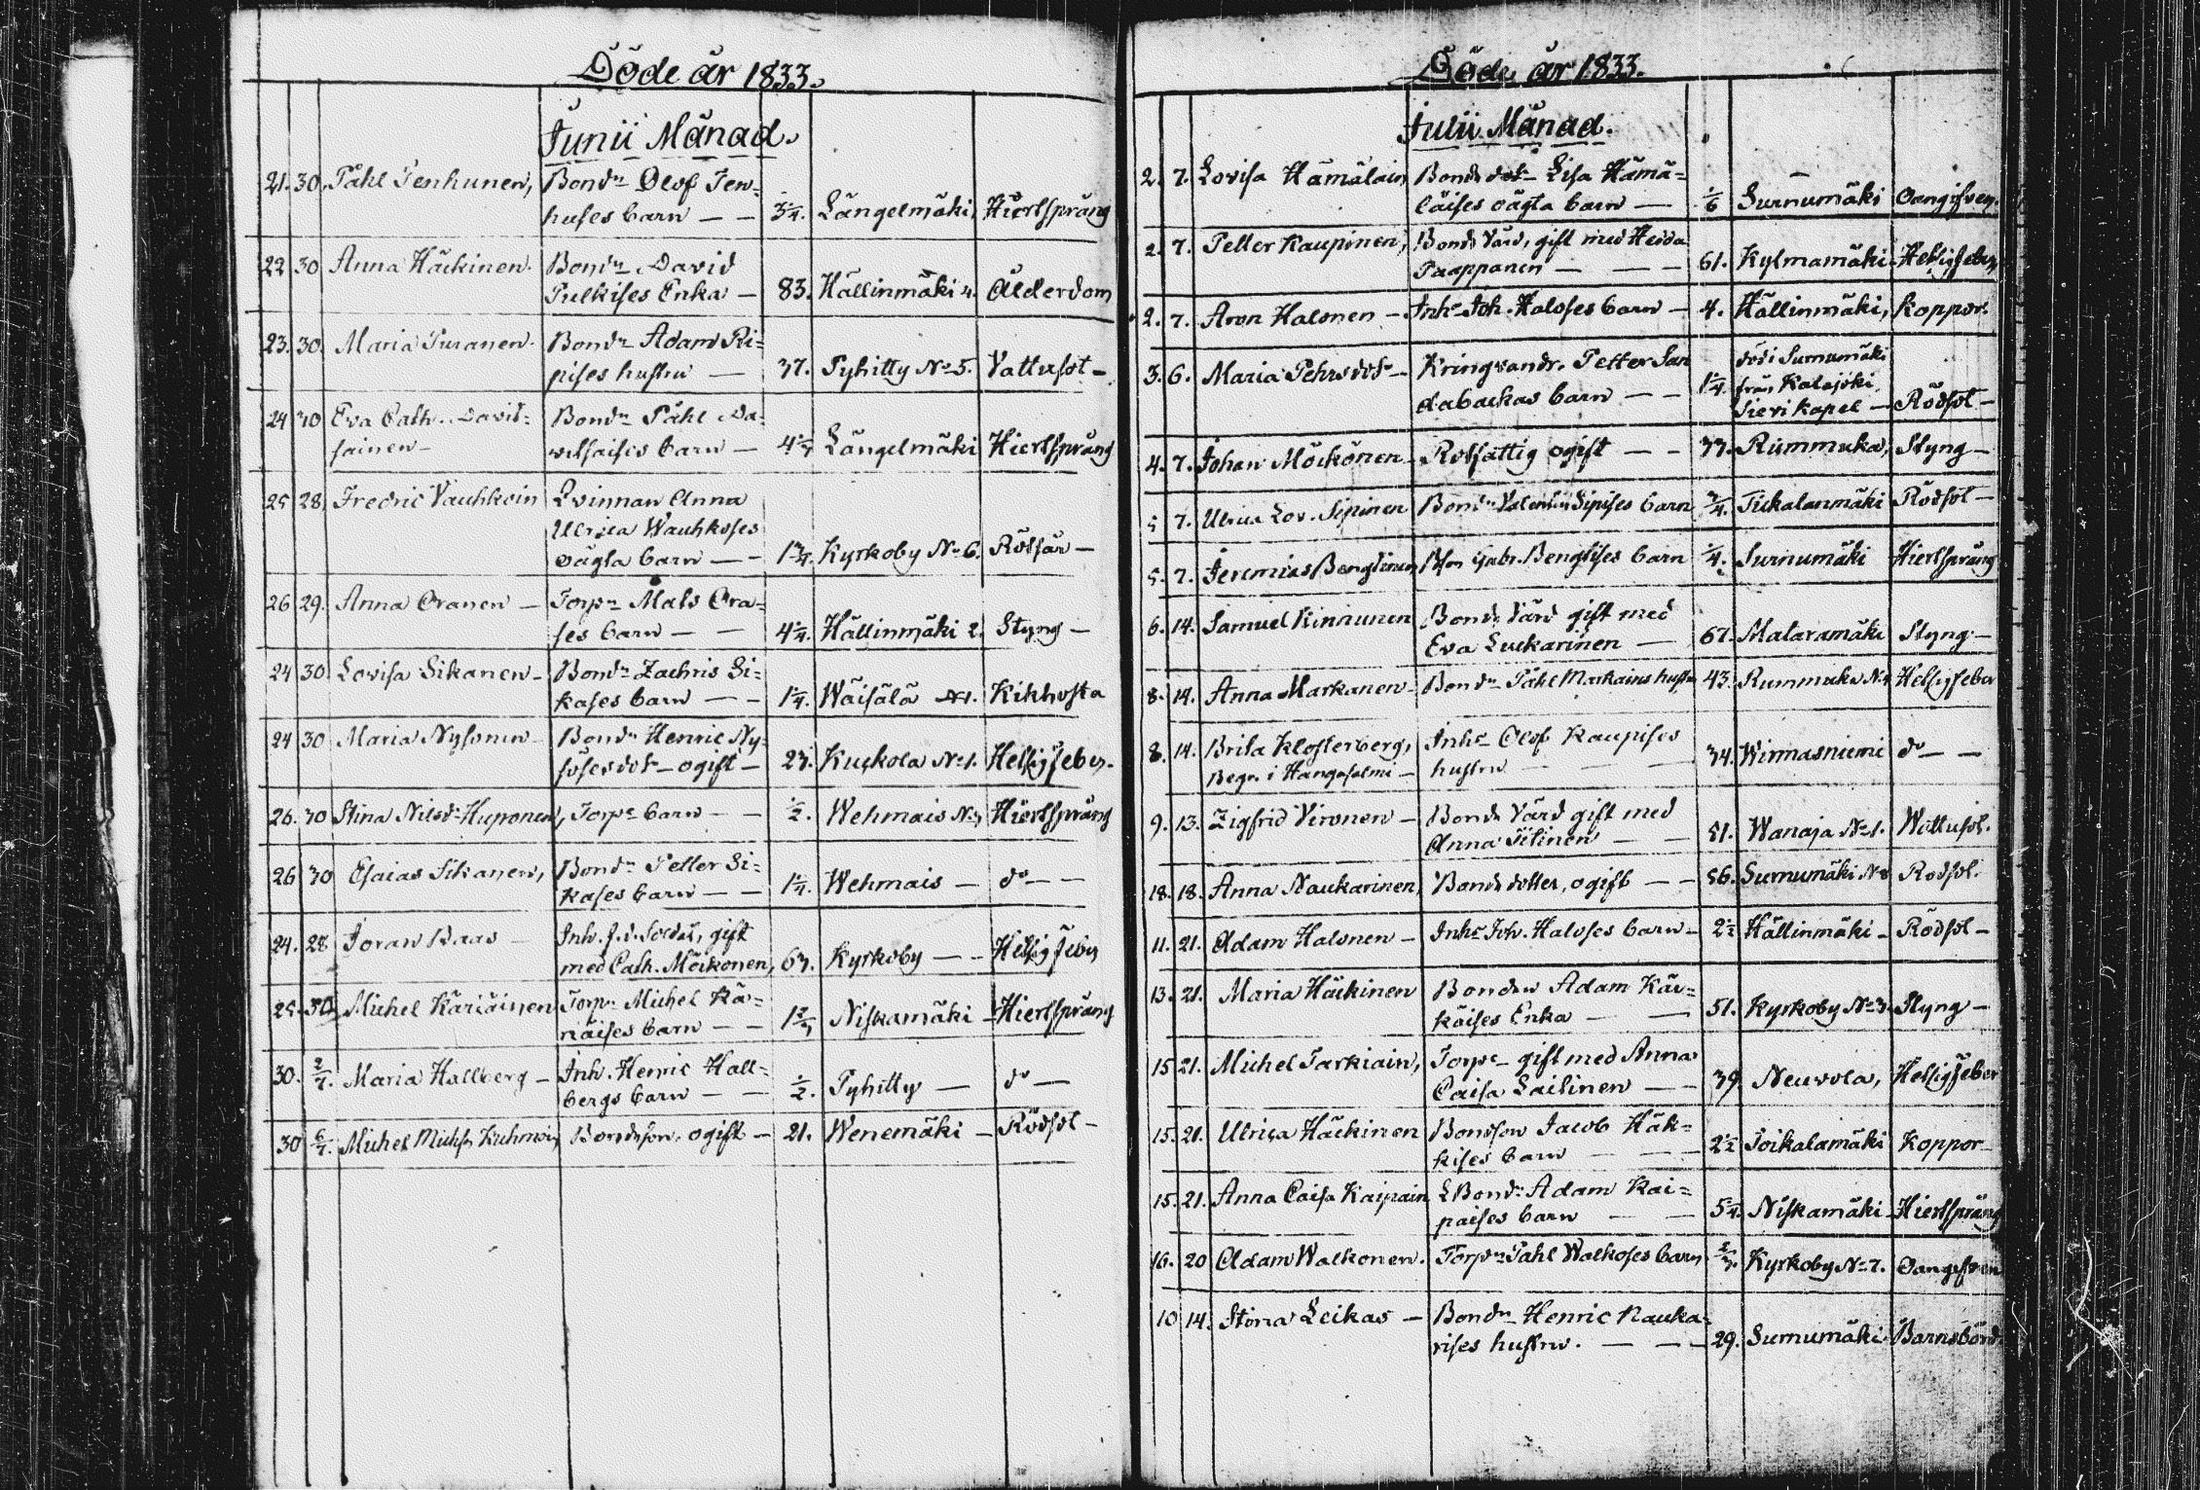 Döde år 1833.
Junii Månad.
21. 30. Påhl Tenhunen, Bondn Olof Ten=
huses barn — — 3 1/4. Längelmäki, Hiertspräng
22 30 Anna Häckinen. Bondn David
Pulkises Enka — 83. Hällinmäki 4. Ålderdom
23. 30. Maria Turanen. Bondn Adam Ri=
pises hustru — 37. Pyhitty No 5. Vattusot —
24 30 Eva Cath. David= Bondn Påhl Da=
sainen — barn — Längelmäki Hiertspräng
25 28 Fredric Vauhkoin Qvinnan Anna
Ulrica Wauhkoses
oägta barn — — Kyrkoby No 6. Rödsån —
26 29. Anna Oranen — Torpn Mats Ora=
ses barn — — 4 1/4. Hällinmäki 2. Styng —
24 30 Lovisa Sikanen — Bondn Zachris Si=
kases barn — — 1 1/4. Wäisälä No 1. Kikhosta
24 30 Maria Nysonen — Bondn Henric Ny=
söses dotr — ogift — 27. Kuckola No 1. Hetsigfeber.
26. 30 Stina Nilsdr Huponen, Torpr barn — — 1/2. Wehmais Hiertspräng
26 30 Esaias Sikanen, Bondn Petter Si=
kases barn — — 1 1/4. Wehmais — do — —
24. 28 Joran Baas — Inh. f.d. Soldat, gift
med Cath. Möikonen, 67. Kyrkoby — — Hetsigfeber
25. 30 Michel Käriäinen Torpn Michel Kä=
riäises barn — — Niskamäki — Hiertspräng
30. 2/7. Maria Hallberg — Inh. Henric Hall=
bergs barn — — 1/2. Pyhitty — do —
30 6/7. Michel Michss Kuhmoin, Bondeson, ogift — 21. Wenemäki — Rödsot —
Döde år 1833.
Julii Månad.
2. 7. Lovisa Hämäläin, Bonde dotr Lisa Hämä=
läises oägta barn — 1/6 Surnumäki Oangifven.
2. 7. Petter Kaupinen, Bonde Vård, gift med Hedda
Paappanen — — — 61. Kylmamäki Hetsigfeber
2. 7. Aron Halonen — Inhr Joh. Haloses barn — 4. Hällinmäki, Koppor.
3. 6. Maria Pehrsdotr — Kringvandr. Petter San
dabackas barn — — 1 1/4. död i Surnumäki
från Kalajoki
Sievi Kapel — Rödsot —
4. 7. Johan Möikönen — Rotfattig ogift — — 77. Rummuka, Styng —
5 7. Ulrica Lov. Sipinen Bondn Valentin Sipises barn 3/4. Tickalanmäki Rödsot —
5. 7. Jeremias Bengtinen Bdn Gabr. Bengtises barn 1/4. Surnumäki Hiertspräng
6. 14. Samuel Kinnunen Bonde Vård gift med
Eva Luckarinen — 67. Mataramäki Styng —
8. 14. Anna Markanen — Bondn Påhl Markains hustr 43. Rummuka Hetsigfeber
8. 14. Brita Klosterberg, Inhr Olof Kaupises
Begr. i Hangasalmi — hustru — — 34. Wirmasniemi do — —
9. 13. Zigfrid Vironen — Bonde Vård gift med
Anna Tilinen — — 51. Wanaja No 1. Wattusot.
18. 18. Anna Naukarinen, Bonde dotter, ogift — — 56. Surnumäki Rödsot.
11. 21. Adam Halonen — Inhr Joh. Haloses barn — 2 1/2 Hällinmäki — Rödsot —
13. 21. Maria Häckinen Bonden Adam Käi=
käises Enka — — 51. Kyrkoby No 3. Styng —
15 21. Michel Tarkiain, Torpr — gift med Anna
Caisa Lailinen — — 39. Neuvola, Hetsigfeber
15. 21. Ulrica Häckinen Bondson Jacob Häk=
kises barn — — 2 1/2 Toikalamäki Koppor —
15. 21. Anna Caisa Kaipain Bondn Adam Kai=
paises barn — — 5 1/4. Niskamäki — Hiertspräng
16. 20 Adam Walkonen. Torpn Påhl Walkoses barn Kyrkoby No 7. Oangifven
10 14. Stina Leikas — Bondn Henric Nauka=
rises hustru. — — — 29. Surnumäki Barnsbörd.